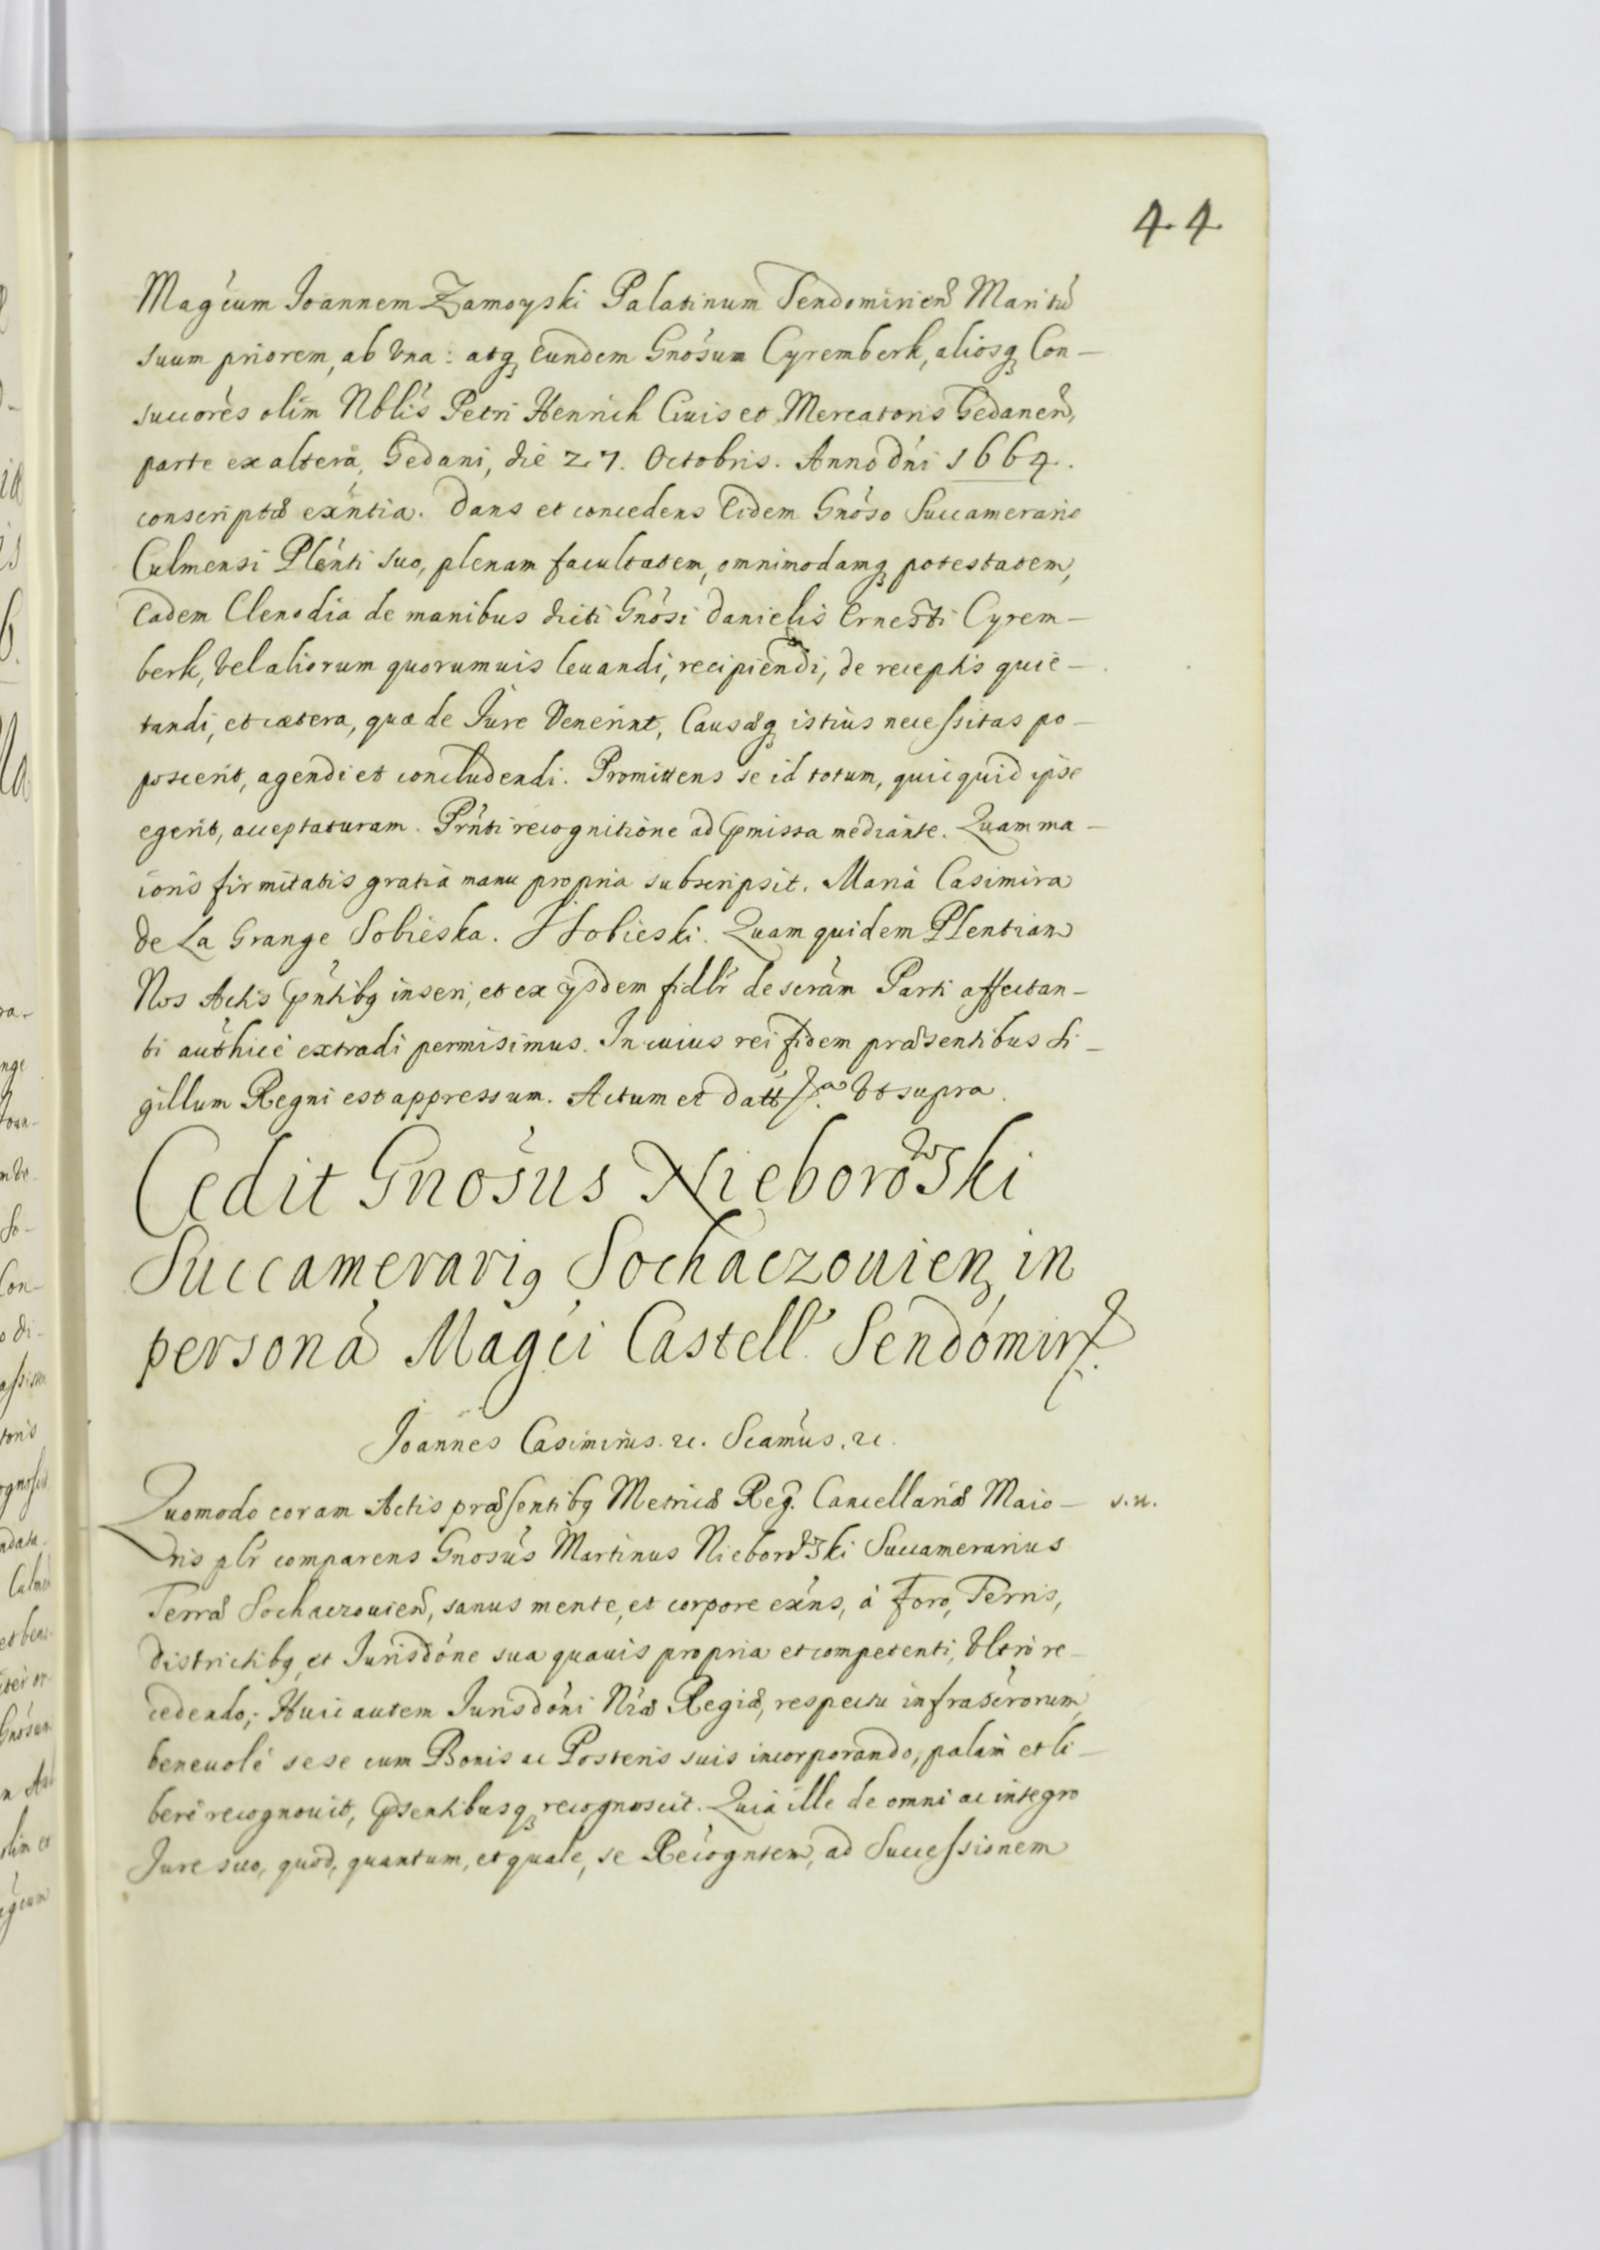 44
Magćum Joannem Zamoyski Palatinum Sendomirien Maritū
suum priorem, ab Vna: atq̨ Eundem Gnósum Cyremberk, aliosq̨ Con-
succorès olim Nblís Petri Henrich Ciuis et Mercatoris Gedanen,
parte ex alterá, Gedani, die 27. Octobris. Anno dńi 1664.
conscriptæ exńtia. Dans et concedens Eidem Gnóso Succamerario
Culmensi Plénti suo, plenam facultatem, omnimodamq̨ potestatem,
Eadem Clenodia de manibus dicti Gnósi Danielis Ernesti Cyrem-
berk, Vel aliorum quorumuis leuandi, recipiendi, de receptis quie-
tandi, et cætera, quæ de Jure Venerint, Causæq̨ istius necessitas po-
poscerit, agendi et concludendi. Promittens se id totum, quicquid ipse
egerit, acceptaturam. Prńti recognitione ad pmissa mediante. Quam ma-
ioris firmitatis gratiá manu propria subscripsit. Maria Casimira
de La Grange Sobieska. J Sobieski. Quam quidem Plentiam
Nos Actis pńtibq inseri, et ex ijsdem fidlr descrám Parti affectan-
ti authicè extradi permisimus. In cuius rei fidem præsentibus Si-
gillum Regni est appressum. Actum et Datt ꝭ.a Vt supra.
Cedit Gnósus Nieborowski
Succamerariq Sochaczouien, in
personá Magći Castell. Sendómir
Joannes Casimirus. &c. Scámus. &c.
Quomodo coram Actis præsentibq Metricæ Reg. Cancellariæ Maio- s.n.
ris plr comparens Gnosús Martinus Nieborowski Succamerarius
Terræ Sochaczouien, sanus mente, et corpore exńs, á Foro, Terris,
districtibq, et Jurisdóne sua quauis propria et competenti, Vltro re-
cedendo; Huic autem Jurisdóni Nræ Regiæ, respectu infrascrórum
beneuolé sese cum Bonis ac Posteris suis incorporando, palám et li-
berè recognouit, psentibusq̨ recognoscit. Quiá ille de omni ac integro
Jure suo, quod, quantum, et quale, se Récogntem, ad Successionem